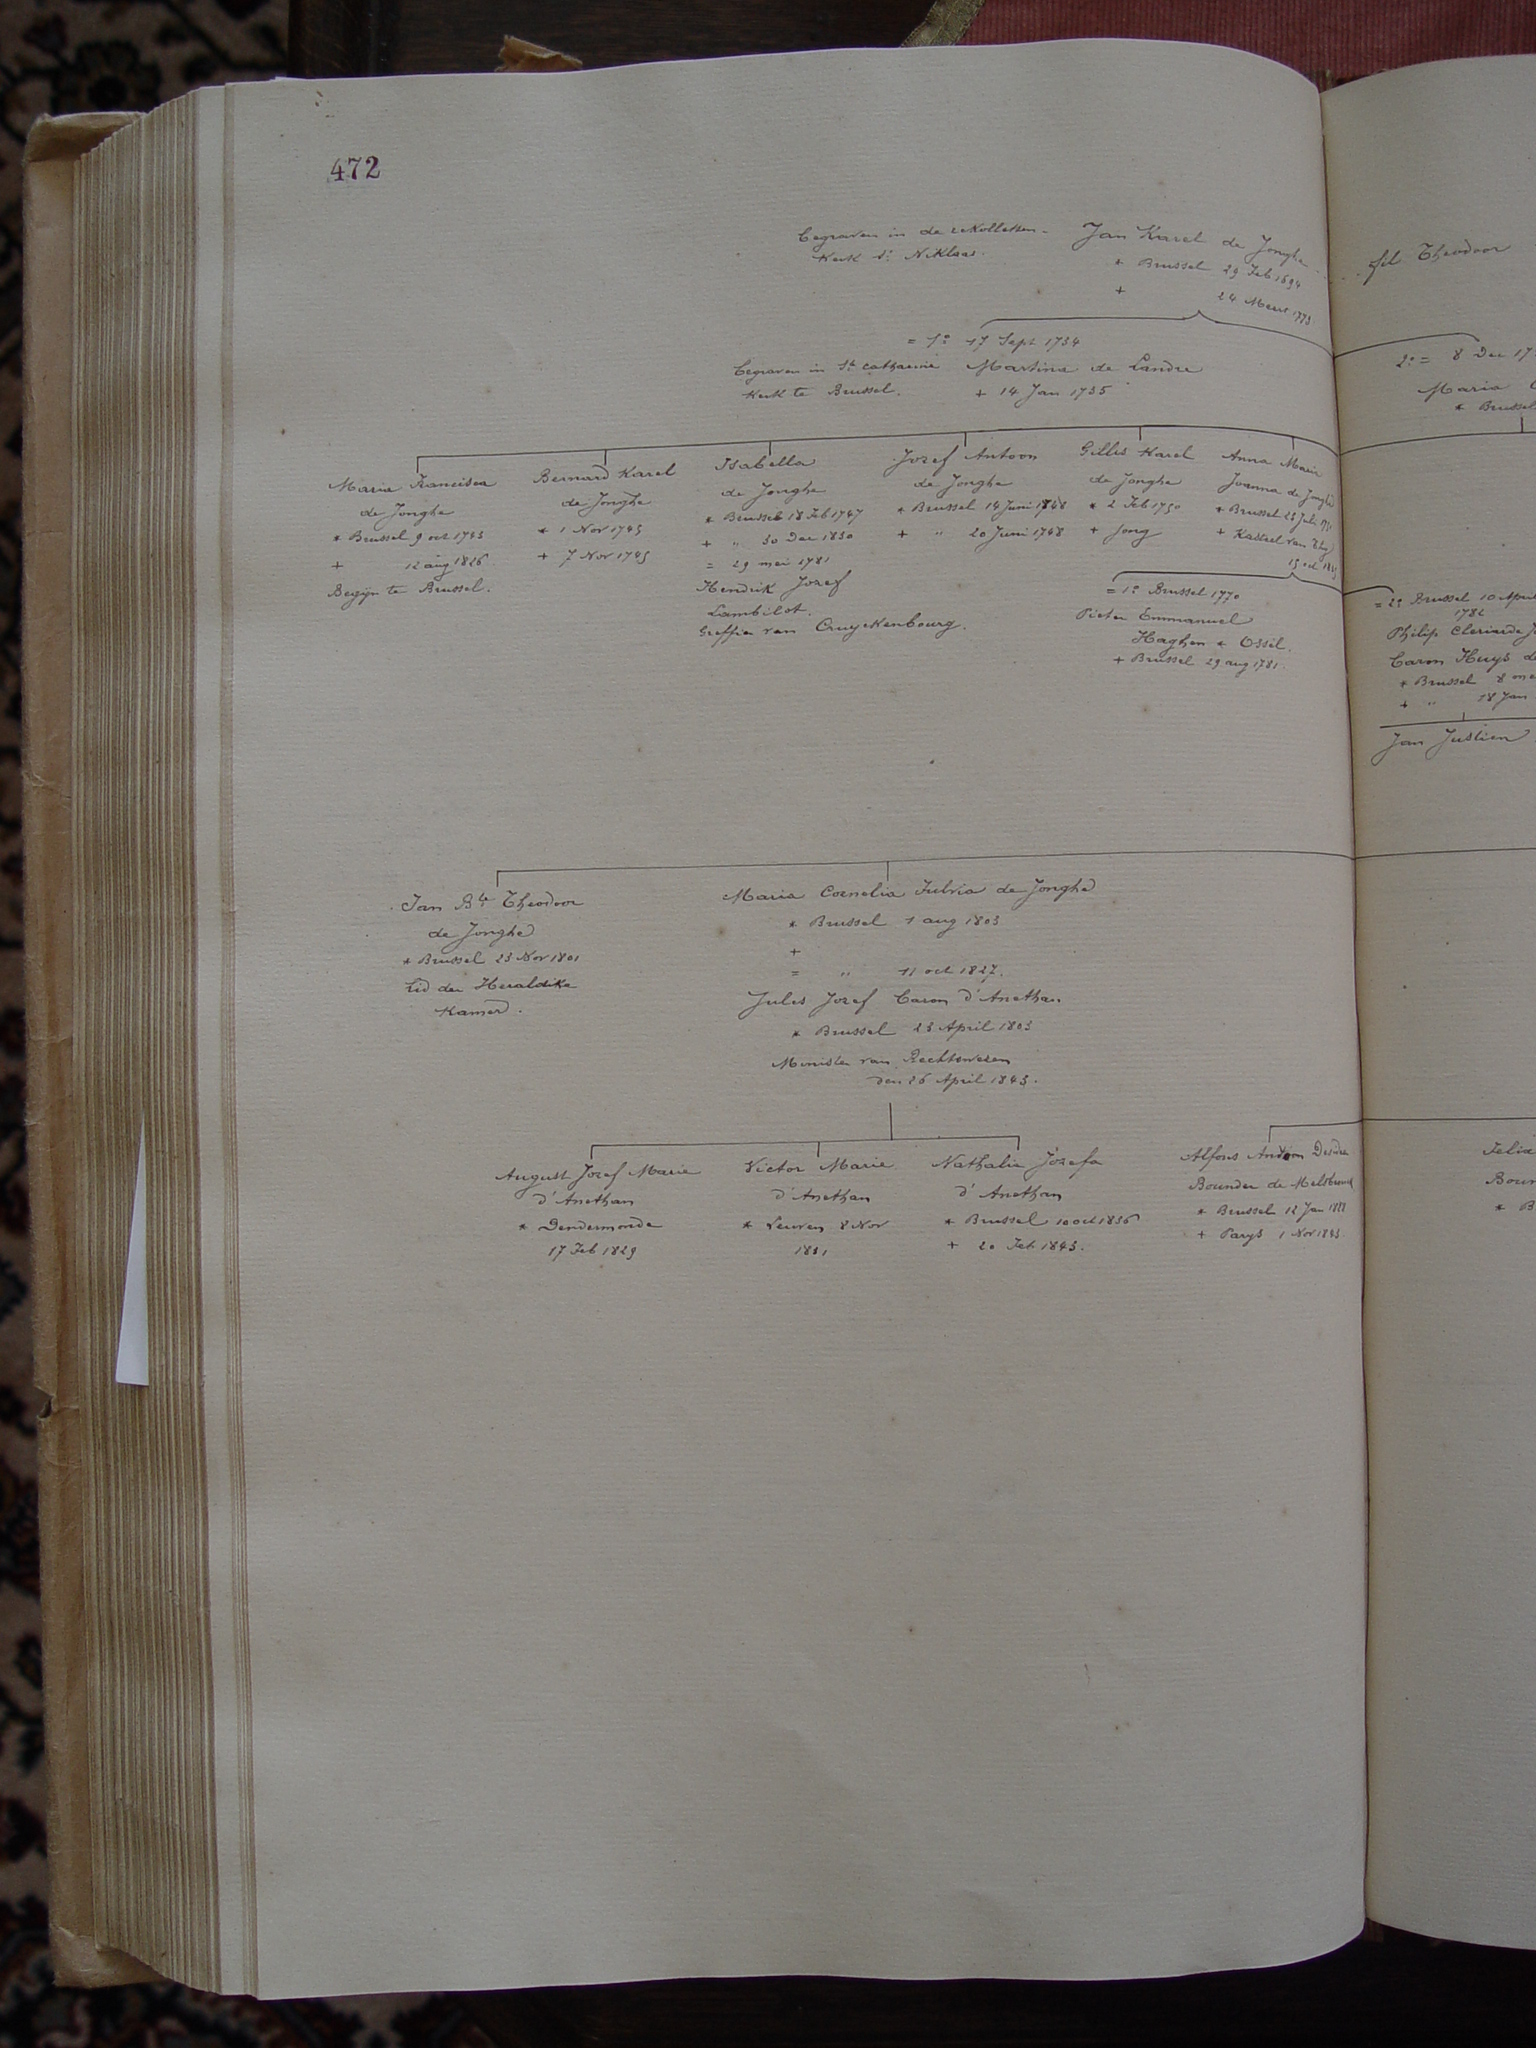 472
Begraven in de rekolletten-
Kerk St Niklaas.
Jan Karel de Jonghe
* Brussel 29 Feb 1694
+ 24 Meert 1773
fil Theodoor
= 1º 17 Sept 1734
Begraven in St. Catharina
Kerk te Brussel.
Martina de Landre
+ 14 Jan 1735
2º = 8 Dec
Maria
* Brussel
Maria Francisca
de Jonghe
* Brussel 9 oct 1743
+ 12 aug 1826
Begijn te Brussel.
Bernard Karel
de Jonghe
* 1 Nov 1745
+ 7 Nov 1745
Isabella
de Jonghe
* Brussel 18 Feb 1747
+ " 30 Dec 1830
= 29 mei 1781
Hendrik Jozef
Lambilot.
Greffier van Cruyckenbourg.
Jozef Antoon
de Jonghe
* Brussel 14 Juni 1748
+ " 20 Juni 1748
Gillis Karel
de Jonghe
* 2 Feb 1750
+ jong
Anna Maria
Joanna de Jonghe
* Brussel 25 Juli
+ Kasteel van
15 oct
= 1º Brussel 1770
Pieter Emmanuel
Haghen * Ossel.
+ Brussel 29 aug 1781.
= 2º Brussel 10 April
178
Philip
Baron Huys de
* Brussel 8
+ " 18 Jan
Jan Justien
Jan Bte Theodoor
de Jonghe
* Brussel 23 Nov 1801
Lid der Heraldike
Kamer.
Maria Cornelia Fulvia de Jonghe
* Brussel 1 aug 1803
+
= " 11 oct 1827.
Jules Jozef Baron d'Anethan
* Brussel 23 April 1803
Minister van Rechtswezen
den 26 April 1843.
August Jozef Marie
d'Anethan
* Dendermonde
17 Feb 1829
Victor Marie
d'Anethan
* Leuven 8 Nov
1831
Nathalie Jozefa
d'Anethan
* Brussel 10 oct 1836
+ 20 Feb 1843.
Alfons Antoon Desider
Bounder de Melsbroeck
* Brussel 12 Jan
+ Parys 1 Nov 1843
Felix
Boun
* B